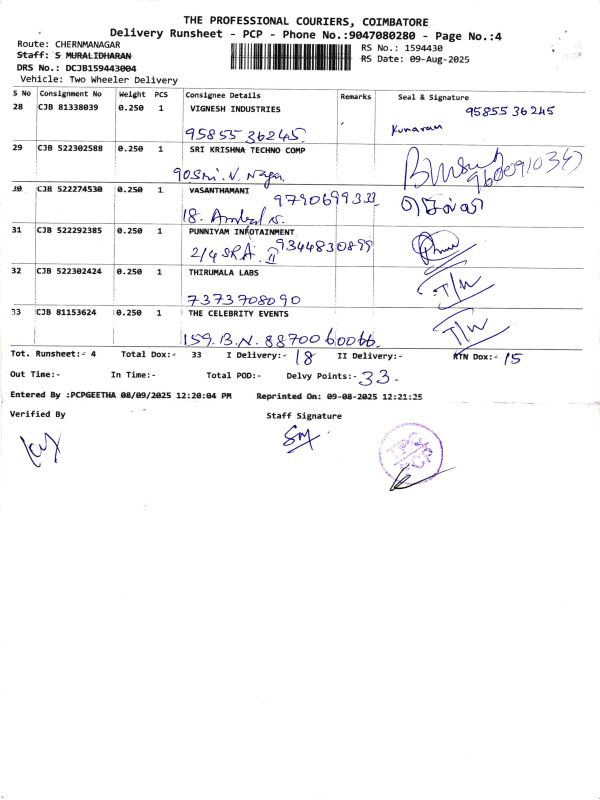 THE PROFESSIONAL COURIERS, COIMBATORE
Delivery Runsheet - PCP - Phone No.:9047080280 - Page No.:4
Route: CHERNMANAGAR
RS No.: 1594430
Staff: S MURALIDHARAN
RS Date: 09-Aug-2025
DRS No.: DCJB159443004
Vehicle: Two Wheeler Delivery
S No Consignment No Weight PCS Consignee Details Remarks Seal & Signature
28 CJB 81338039 0.250 1 VIGNESH INDUSTRIES 95855 36245
95855 36245. Kumaran
29 CJB 522302588 0.250 1 SRI KRISHNA TECHNO COMP
90 Sri. V. Nagar
30 CJB 522274530 0.250 1 VASANTHAMANI 9790699333
18.
31 CJB 522292385 0.250 1 PUNNIYAM INFOTAINMENT
2/4 SRA. II 9344830899
32 CJB 522302424 0.250 1 THIRUMALA LABS
7373708090
33 CJB 81153624 0.250 1 THE CELEBRITY EVENTS
159. B. N. 88700 60066.
Tot. Runsheet:- 4 Total Dox:- 33 I Delivery:- 18 II Delivery:- RTN Dox:- 15
Out Time:- In Time:- Total POD:- Delvy Points:- 33.
Entered By :PCPGEETHA 08/09/2025 12:20:04 PM Reprinted On: 09-08-2025 12:21:25
Verified By Staff Signature
TPC
PCP